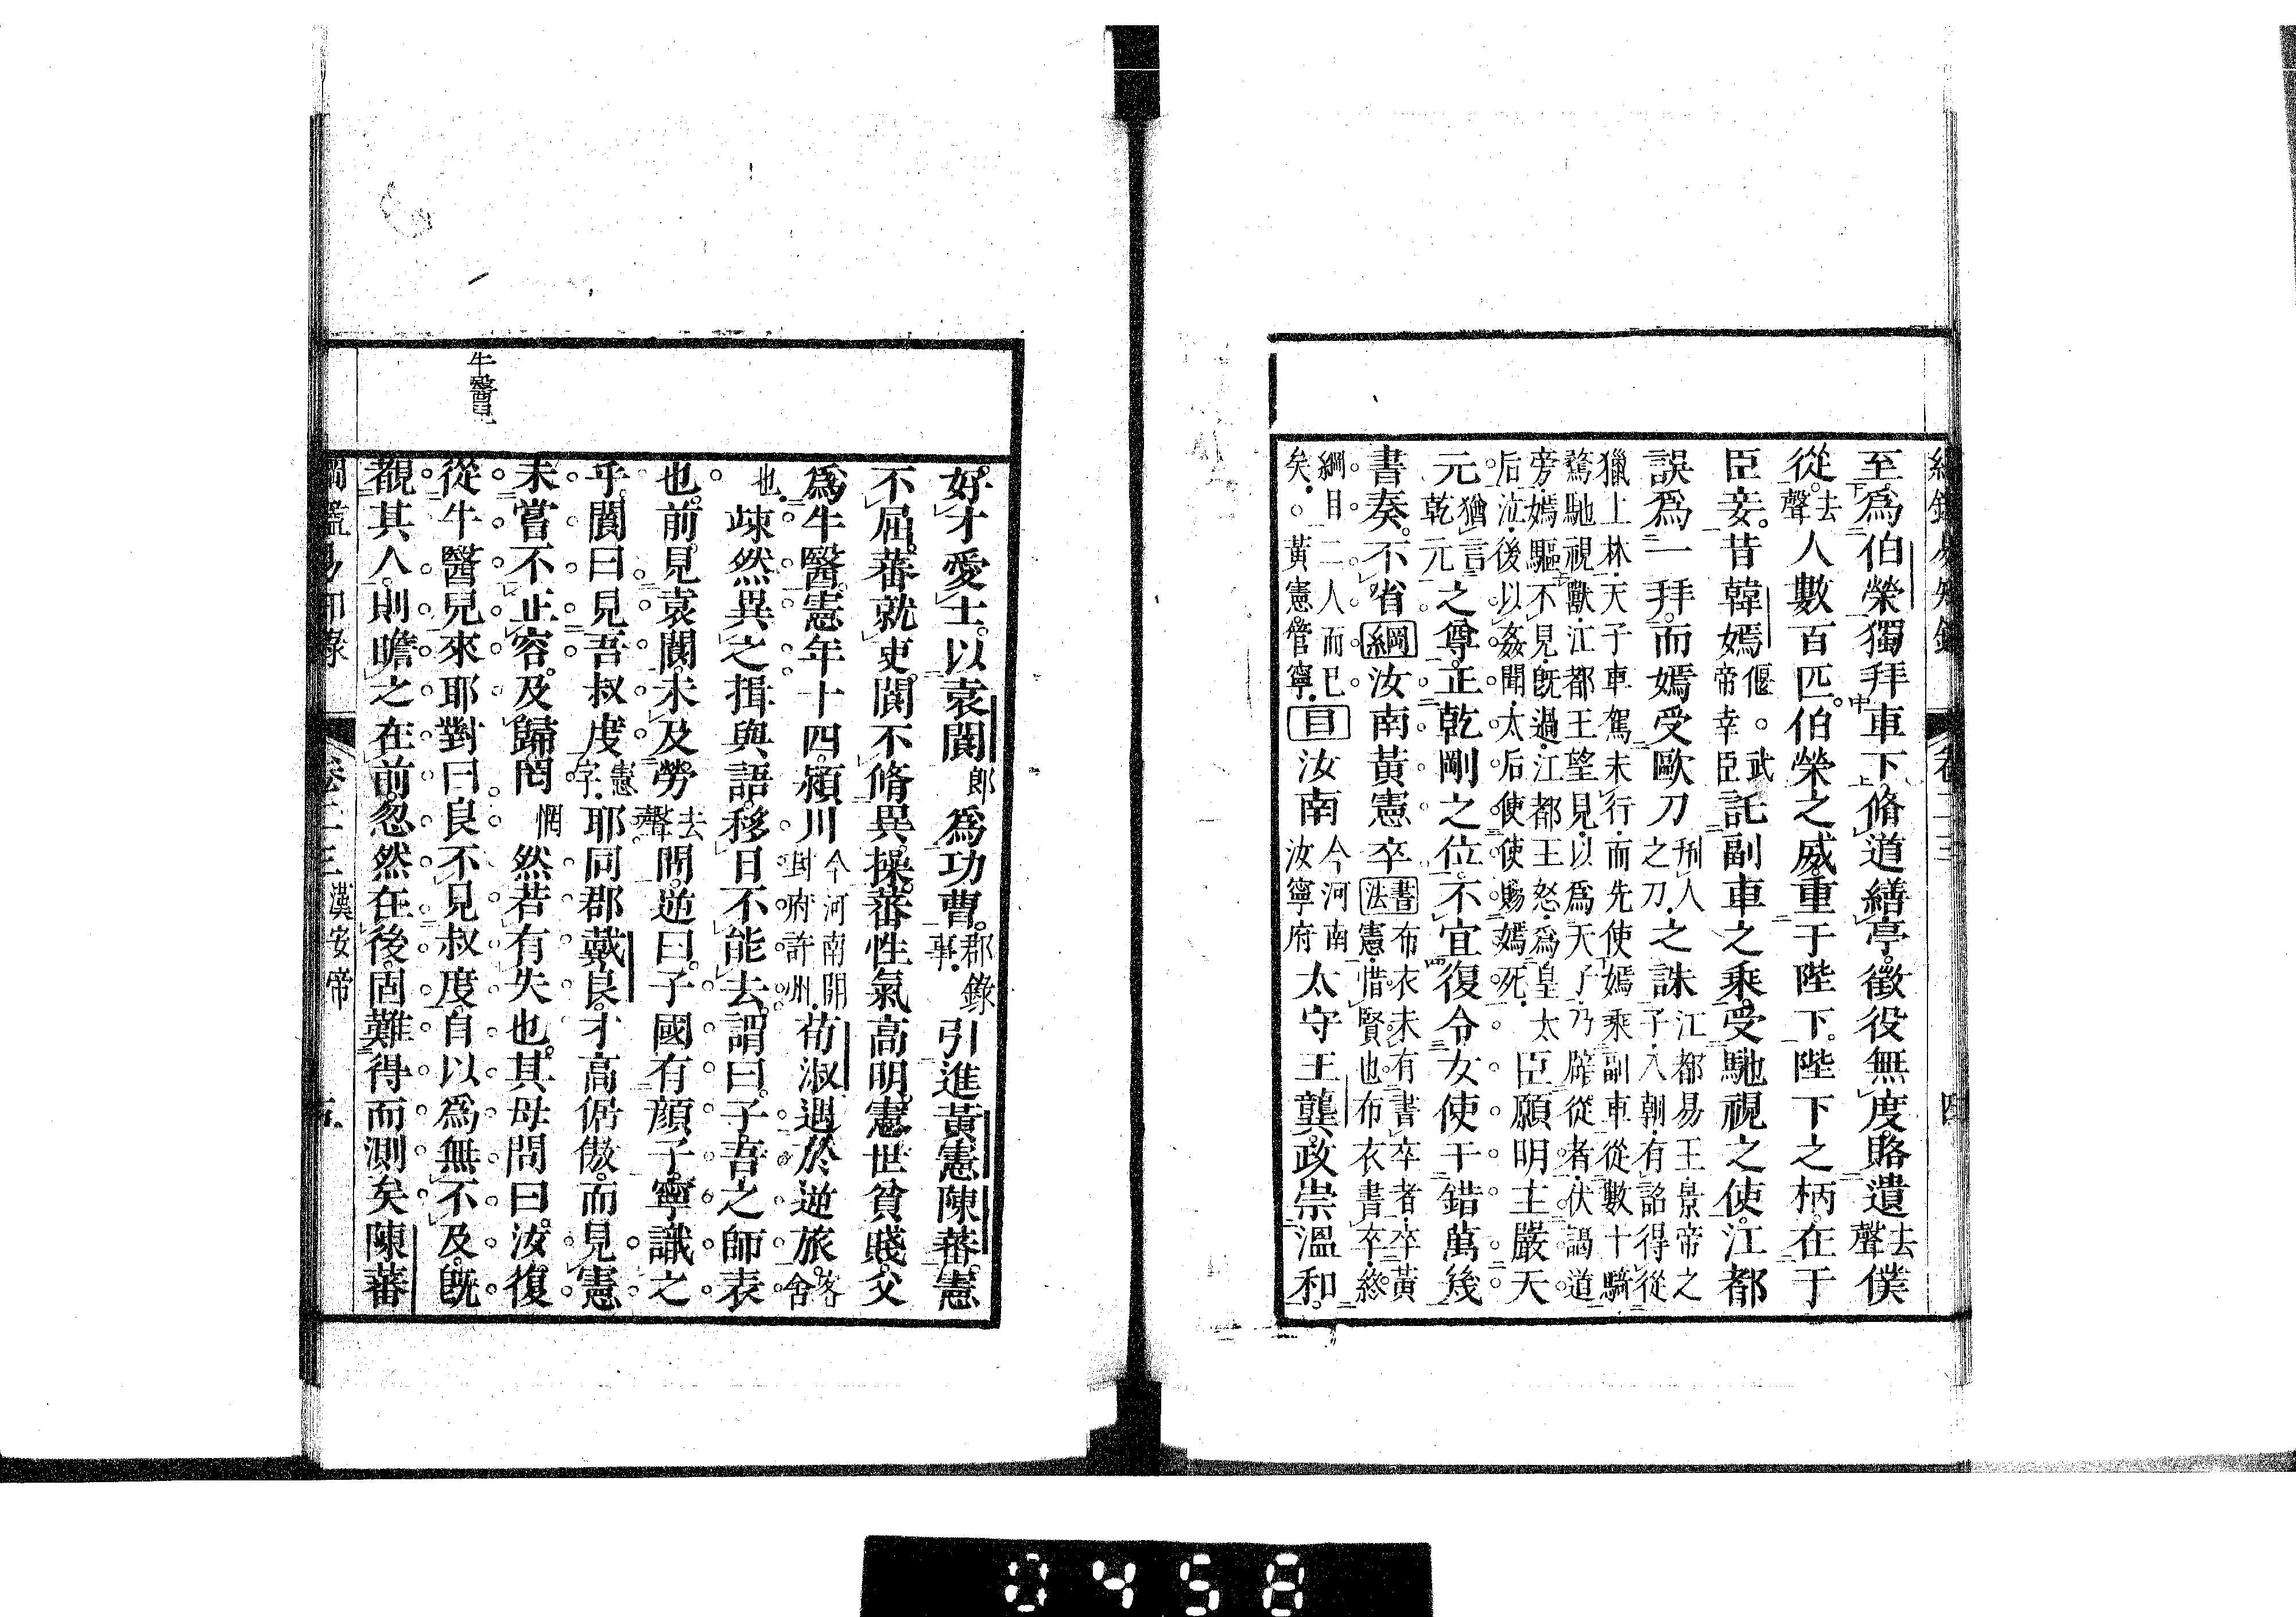 至爲伯榮獨拜車下脩道繕亭徵役無度賂遺去聲僕
從去聲人數百匹伯榮之威重于陛下陛下之柄在于
臣妾昔韓嫣偃○武帝幸臣託副車之乘受馳視之使江都
誤爲一拜而嫣受歐刀刑人之刀之誅江都易王景帝之子入朝有詔得從
獵上林天子車駕未行而先使嫣乘副車從數十騎
騖馳視獸江都王望見以爲天子乃辟從者伏謁道
旁嫣驅不見旣過江都王怒爲皇太
后泣後以姦聞太后使使賜嫣死臣願明主嚴天
元乾元猶言乾元之尊正乾剛之位不宜復令女使干錯萬幾
書奏不省綱汝南黃憲卒書法布衣未有書卒者卒黃憲惜賢也布衣書卒終
綱目二人而已矣○黃憲管寧目汝南今河南汝寧府太守王龔政崇溫和
四
好才愛士以袁閬郎爲功曹郡錄事引進黃憲陳蕃憲
不屈蕃就吏閬不脩異操蕃性氣高明憲世貧賤父
爲牛醫憲年十四潁川今河南開封府許州荀淑遇於逆旅客舍
也竦然異之揖與語移日不能去謂曰子吾之師表
也前見袁閬未及勞去聲問逆曰子國有顏子寧識之
乎閬曰見吾叔度憲字耶同郡戴良才高倨傲而見憲
未嘗不正容及歸罔惘然若有失也其母問曰汝復
從牛醫兒來耶對曰良不見叔度自以爲無不及旣
覩其人則瞻之在前忽然在後固難得而測矣陳蕃
牛醫兒
綱鑑易知錄 卷二十三 漢安帝
0458